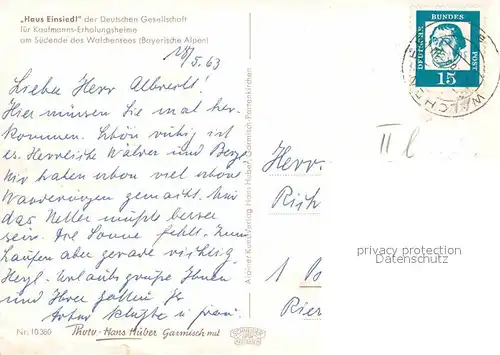 „Haus Einsiedl" der Deutschen Gesellschaft
für Kaufmanns-Erholungsheime
am Südende des Walchensees (Bayerische Alpen)
18/5.63
Lieber Herr Albrecht!
Hier müssen Sie mal her-
kommen. Schön ruhig ist
es. Herrliche Wälder und Berge.
Wir haben schon viel schöne
Wanderungen gemacht. Nur
das Wetter müßte besser
sein. Die Sonne fehlt. Zum
Laufen aber gerade richtig.
Herzl. Urlaubsgrüße Ihnen
und Ihrer Gattin Ihr
Artur u. Frau.
Nr. 10360
Photo - Hans Huber Garmisch
Archiv- u. Kunstverlag Hans Huber, Garmisch-Partenkirchen
DEUTSCHE BUNDES POST
15
WALCHENSEE
II l
Herr
privacy protection
Datenschutz
1